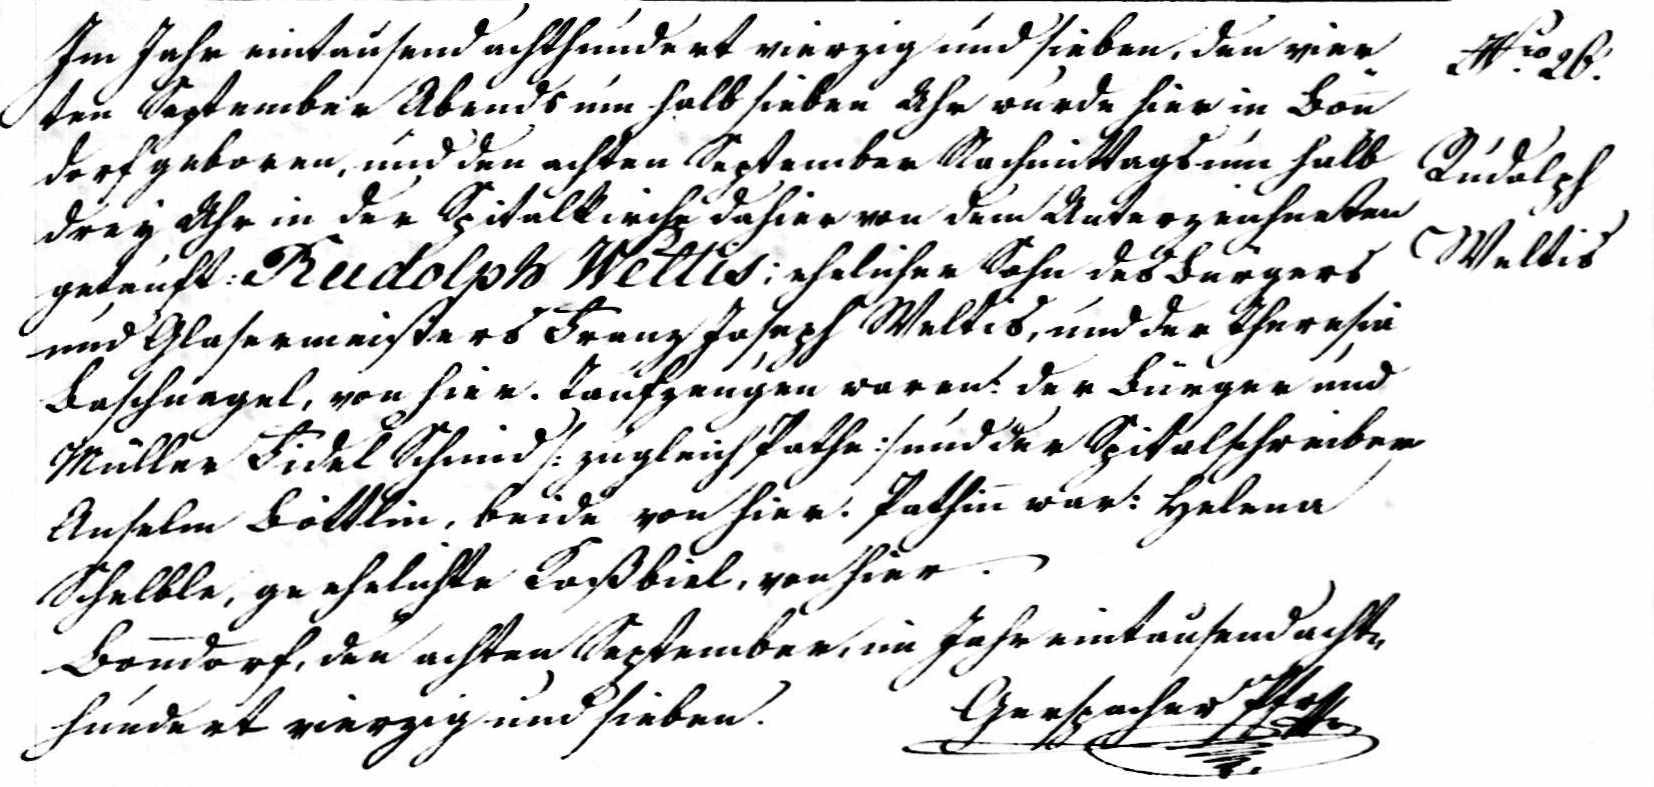 Im Jahr eintausend achthundert vierzig und sieben, den vier
ten September Abends um halb sieben Uhr wurde hier in Bon̄
dorf geboren, und den achten September Nachmittags um halb
drey Uhr in der Spitalkirche dahier von dem Unterzeichneten
getauft: Rudolph Weltis; ehelicher Sohn des Bürgers
und Glasermeisters Franz Joseph Weltis, und der Theresia
Baschnagel, von hier. Taufzeugen waren: der Bürger und
Müller Fidel Schmid /: zugleich Pathe :/ und der Spitalschreiber
Anselm Böttlin, beide von hier. Pathin̄ war: Helena
Schelble, geehelichte Koßbiel, von hier.
Bon̄dorf, den achten September, im Jahr eintausend acht-
hundert vierzig und sieben.
Gerspacher Pfr
Nro 26.
Rudolph
Weltis